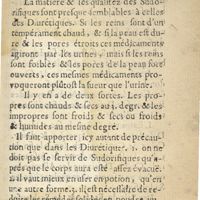 La matiere & les qualitez des Sudo-
rifiques sont presque semblables à celles
des Diuretiques. Si les reins sont d'un
temperament chaud, & si la peau est du-
re & les pores étroits ces medicamens
agiront par les urines, mais si les reins
sont foibles & les pores de la peau fort
ouverts, ces mesmes medicamens pro-
voqueront plûtost la sueur que l'urine.
Il y en a de deux sortes. Les pro-
pres sont chauds & secs au 3. degr. & les
impropres sont froids & secs ou froids
& humides au mesme degré.
Il faut apporter icy autant de précau-
tion que dans les Diuretiques. 1. on ne
doit pas se servir de Sudorifiques qu'a-
prés que le corps aura esté assez évacué.
2. il vaut mieux en user en potion, qu'en
une autre forme. 3. il est necessaire de re-